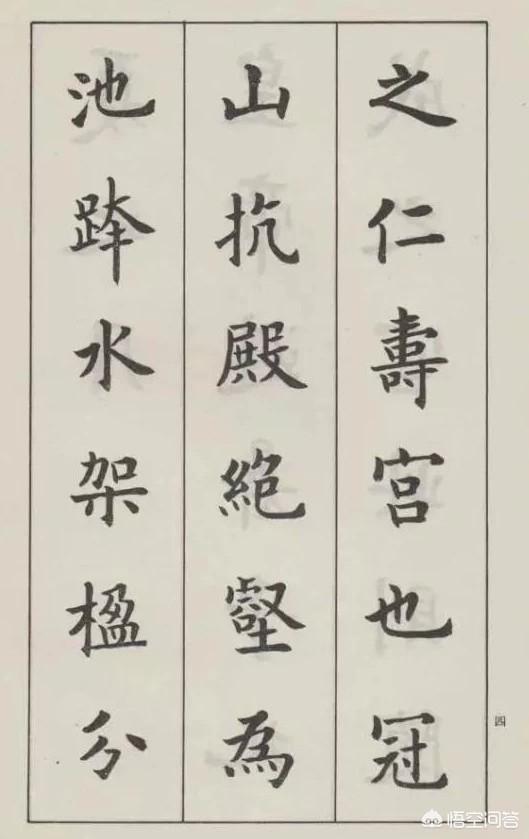 之仁壽宮也冠
山抗殿絶壑為
池跨水架楹分
四
悟空问答